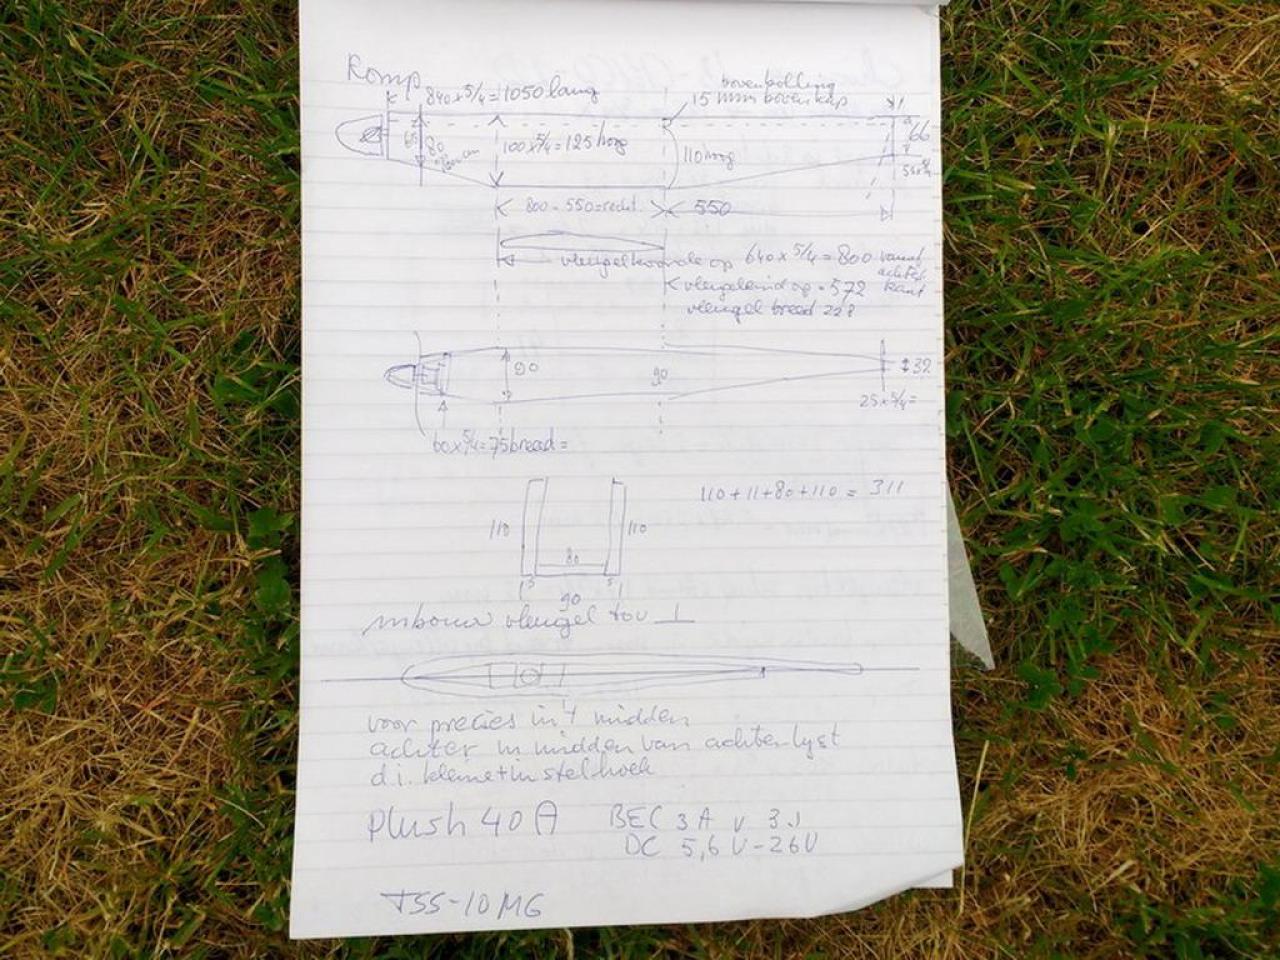 Romp
840 x 5/4 = 1050 lang
bovenbolling
15 mm bovenkap
65
80
100 x 5/4 = 125 hoog
110 hoog
66
800 - 550 = recht.
550
vleugelkoorde op 640 x 5/4 = 800 vanaf
achter
kant
vleugeleind op = 572
vleugel breed 228
90
90
32
25 x 5/4 =
60 x 5/4 = 75 breed =
110 + 11 + 80 + 110 = 311
110
110
80
5
5
90
inbouw vleugel tov
voor precies in 't midden
achter in midden van achterlyst
d.i. kleine + instelhoek
plush 40 A
BEC 3A
DC 5,6 V - 26 V
TSS-10 MG